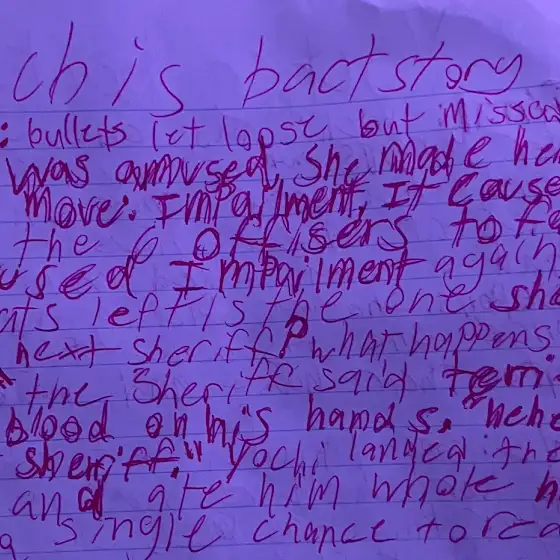 ch is bactstory
: bullets let loose but missed
was amused, she made he
move. Impairment, It cause
the 6 Offisers to fa
used Impairment again
ats left is the one she
next sheriff? what happens
the Sheriff said
blood on his hands. "hehe
sheriff." Yochi landed the
and ate him whole h
a single chance to rea